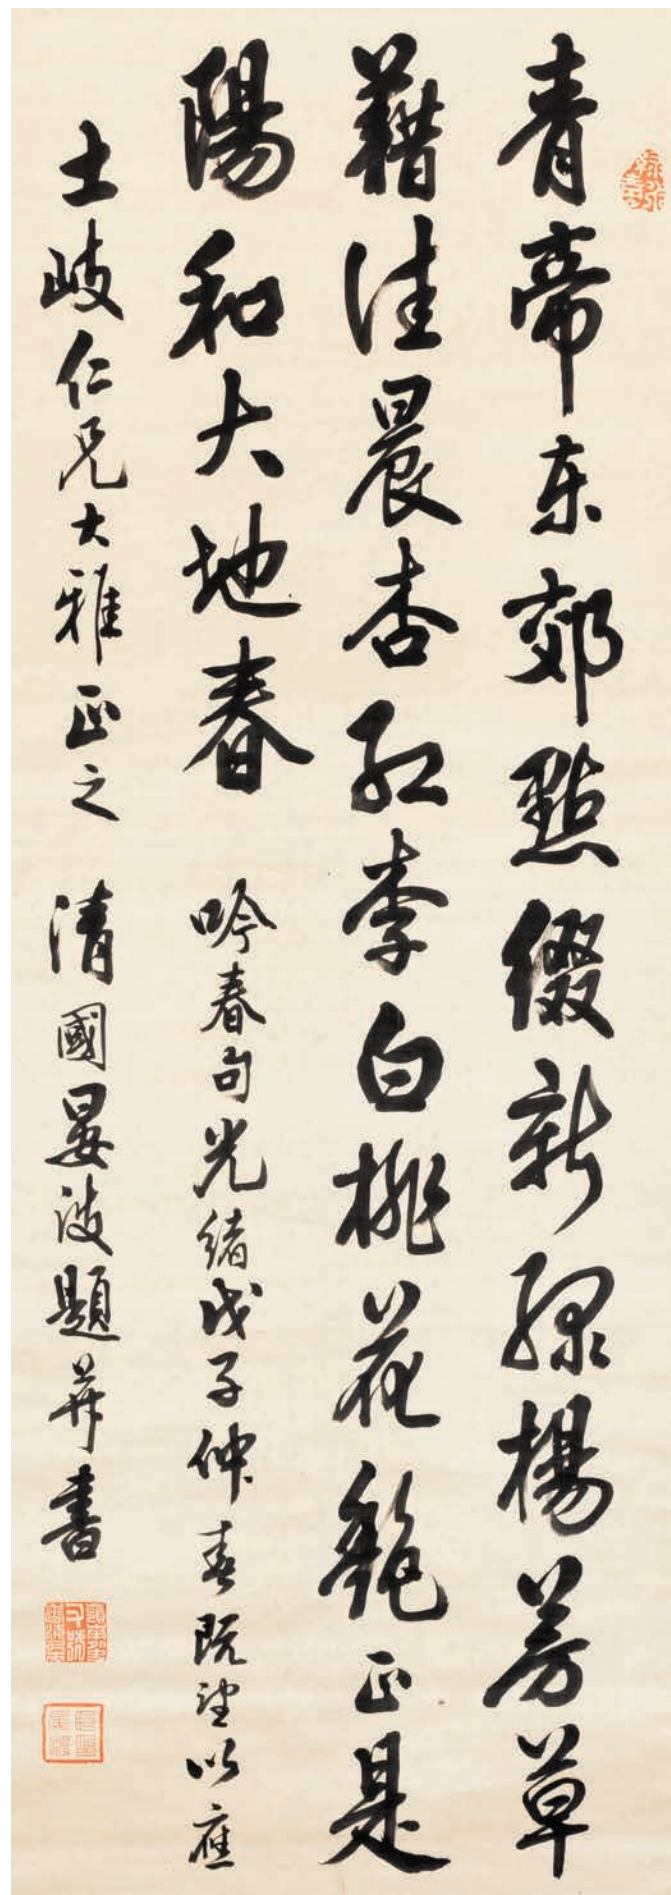 青帝东郊點缀新綠楊芳草
藉佳晨杏紅李白桃花艶正是
陽和大地春
吟春句光緒戊子仲春既望以應
士岐仁兄大雅正之 清國晏波題并書